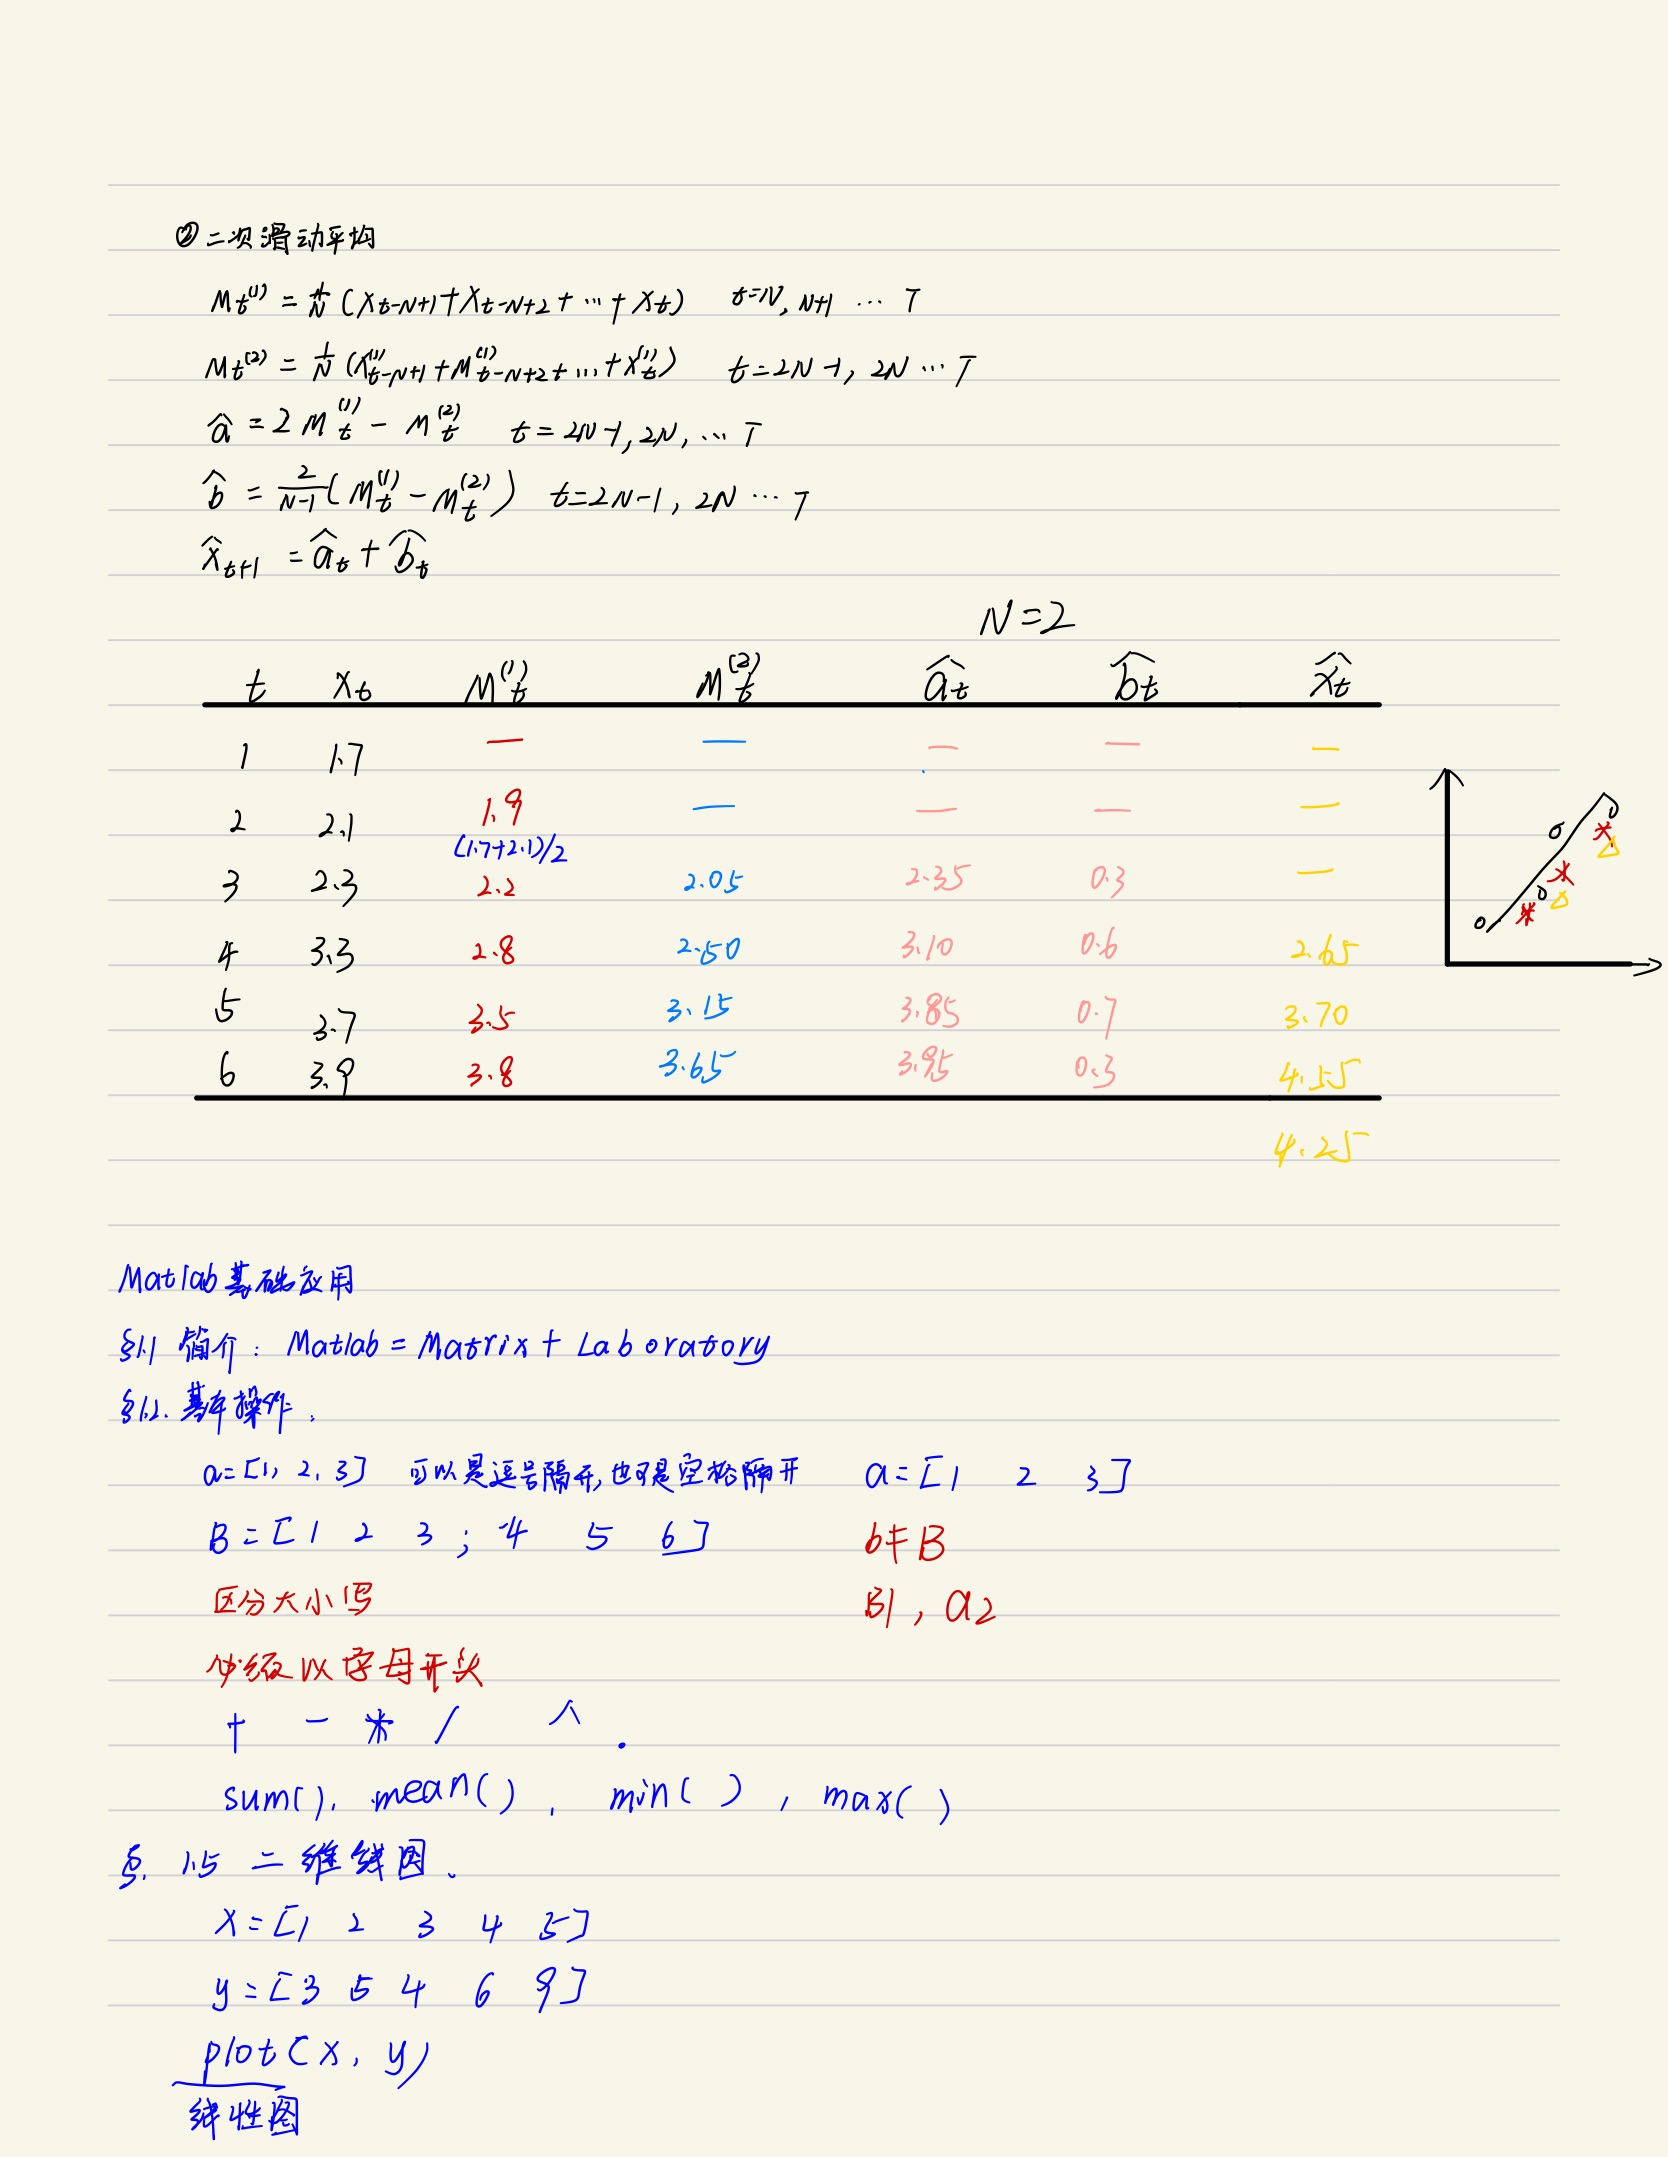 ② 二次滑动平均
Mt⁽¹⁾ = 1/N (Xt-N+1 + Xt-N+2 + … + Xt) t=N, N+1 … T
Mt⁽²⁾ = 1/N (X⁽¹⁾t-N+1 + M⁽¹⁾t-N+2 + … + X⁽¹⁾t) t=2N-1, 2N … T
â = 2M⁽¹⁾t - M⁽²⁾t t=2N-1, 2N, … T
b̂ = 2/(N-1) (M⁽¹⁾t - M⁽²⁾t) t=2N-1, 2N … T
x̂t+1 = ât + b̂t
N=2
t Xt M⁽¹⁾t M⁽²⁾t ât b̂t x̂t
1 1.7 — — — — —
2 2.1 1.9 — — — —
(1.7+2.1)/2
3 2.3 2.2 2.05 2.35 0.3 —
4 3.3 2.8 2.50 3.10 0.6 2.65
5 3.7 3.5 3.15 3.85 0.7 3.70
6 3.9 3.8 3.65 3.95 0.3 4.55
4.25
Matlab基础应用
§1.1 简介: Matlab = Matrix + Laboratory
§1.2. 基本操作:
a=[1, 2, 3] 可以是逗号隔开, 也可是空格隔开 a=[1 2 3]
B=[1 2 3 ; 4 5 6] b≠B
区分大小写 B1, a2
必须以字母开头
+ - * / ^ .
sum(), mean(), min( ), max( )
§. 1.5 二维线图.
x=[1 2 3 4 5]
y=[3 5 4 6 9]
plot(x, y)
线性图